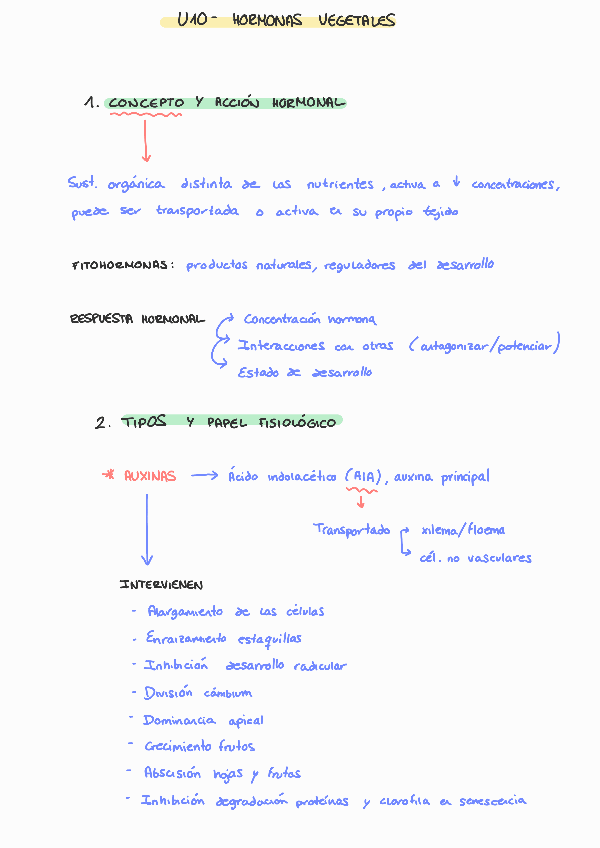 U10- HORMONAS VEGETALES
1. CONCEPTO Y ACCIÓN HORMONAL
Sust. orgánica distinta de las nutrientes, activa a ↓ concentraciones,
puede ser transportada o activa en su propio tejido
FITOHORMONAS: productos naturales, reguladores del desarrollo
RESPUESTA HORMONAL → Concentración hormona
→ Interacciones con otras (antagonizar/potenciar)
→ Estado de desarrollo
2. TIPOS Y PAPEL FISIOLÓGICO
* AUXINAS → Ácido indolacético (AIA), auxina principal
Transportado → xilema/floema
→ cél. no vasculares
INTERVIENEN
- Alargamiento de las células
- Enraizamiento estaquillas
- Inhibición desarrollo radicular
- División cámbium
- Dominancia apical
- Crecimiento frutos
- Abscisión hojas y frutos
- Inhibición degradación proteínas y clorofila en senescencia